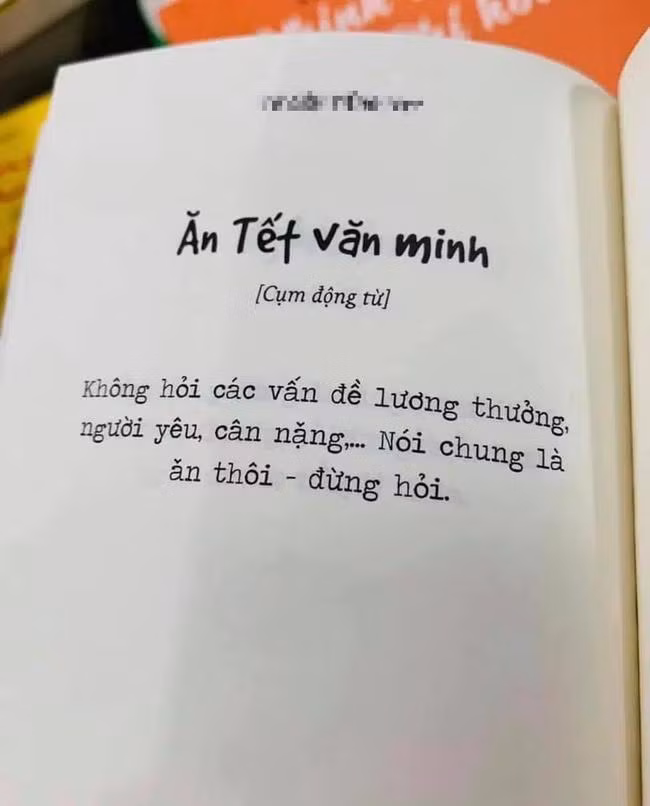 Ăn Tết văn minh
[Cụm động từ]
Không hỏi các vấn đề lương thưởng,
người yêu, cân nặng,... Nói chung là
ăn thôi - đừng hỏi.